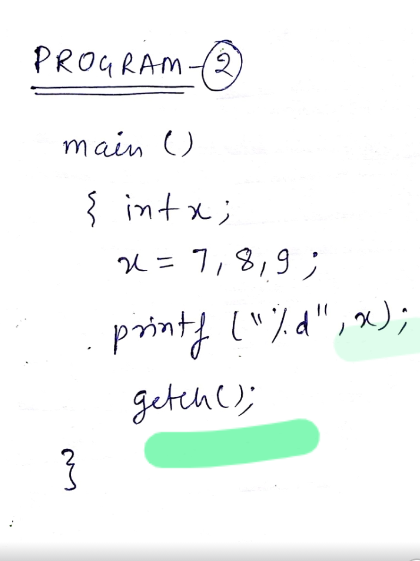 PROGRAM-2
main ()
{ int x;
x = 7,8,9;
printf ("%d", x);
getch();
}